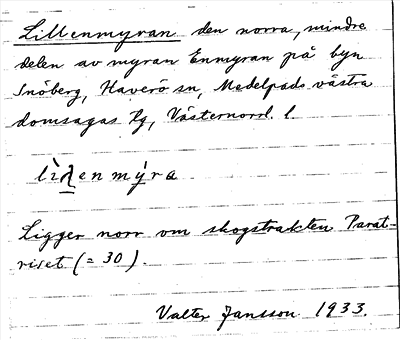 Lillenmyran den norra, mindre
delen av myran Enmyran på byn
Snöberg, Haverö sn, Medelpads västra
domsagas tg, Västernorrl. l.
lìꞎenmy̌ra
Ligger norr om skogstrakten Parat-
riset (= 30).
Valter Jansson 1933.